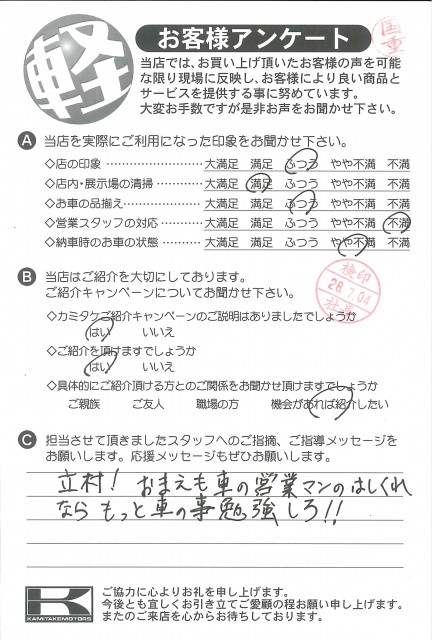 軽
お客様アンケート
国重
当店では、お買い上げ頂いたお客様の声を可能
な限り現場に反映し、お客様により良い商品と
サービスを提供する事に努めています。
大変お手数ですが是非お声をお聞かせ下さい。
A 当店を実際にご利用になった印象をお聞かせ下さい。
◇店の印象 大満足 満足 ふつう やや不満 不満
◇店内・展示場の清掃 大満足 満足 ふつう やや不満 不満
◇お車の品揃え 大満足 満足 ふつう やや不満 不満
◇営業スタッフの対応 大満足 満足 ふつう やや不満 不満
◇納車時のお車の状態 大満足 満足 ふつう やや不満 不満
B 当店はご紹介を大切にしております。
ご紹介キャンペーンについてお聞かせ下さい。
検印
28.7.04
社長
◇カミタケご紹介キャンペーンのご説明はありましたでしょうか
はい いいえ
◇ご紹介を頂けますでしょうか
はい いいえ
◇具体的にご紹介頂ける方とのご関係をお聞かせ頂けますでしょうか
ご親族 ご友人 職場の方 機会があれば紹介したい
C 担当させて頂きましたスタッフへのご指摘、ご指導メッセージを
お願いします。応援メッセージもぜひお願いします。
立村! おまえも車の営業マンのはしくれ
なら もっと車の事勉強しろ!!
K
KAMITAKEMOTORS
ご協力に心よりお礼を申し上げます。
今後とも宜しくお引き立てご愛顧の程お願い申し上げます。
またのご来店を心からお待ちしております。